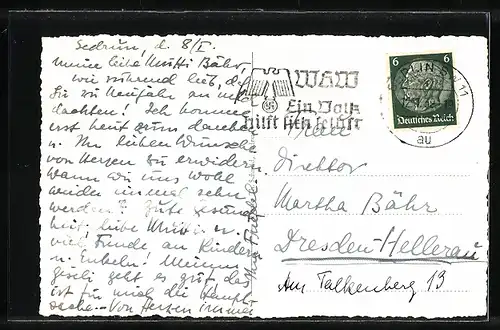 Sedrun, d. 8/I.
meine liebe Mutti Bähr,
wie rührend lieb, daß
Sie zu Neujahr an mich
dachten! Ich komme
erst heut zum danken
u. Ihre lieben Wünsche
von Herzen zu erwidern
Wann wir uns wohl
wieder einmal sehn
werden? Gute Gesund-
heit, liebe Mutti u.
viel Freude an Kindern
u. Enkeln!
geht es gut, das
ist für mich die Haupt-
sache. Von Herzen immer
Ihre
WHW
Ein Volk
hilft sich selbst
6 6
Deutsches Reich
BERLIN SW 11
au
Frau
Direktor
Martha Bähr
Dresden-Hellerau
Am Talkenberg 13